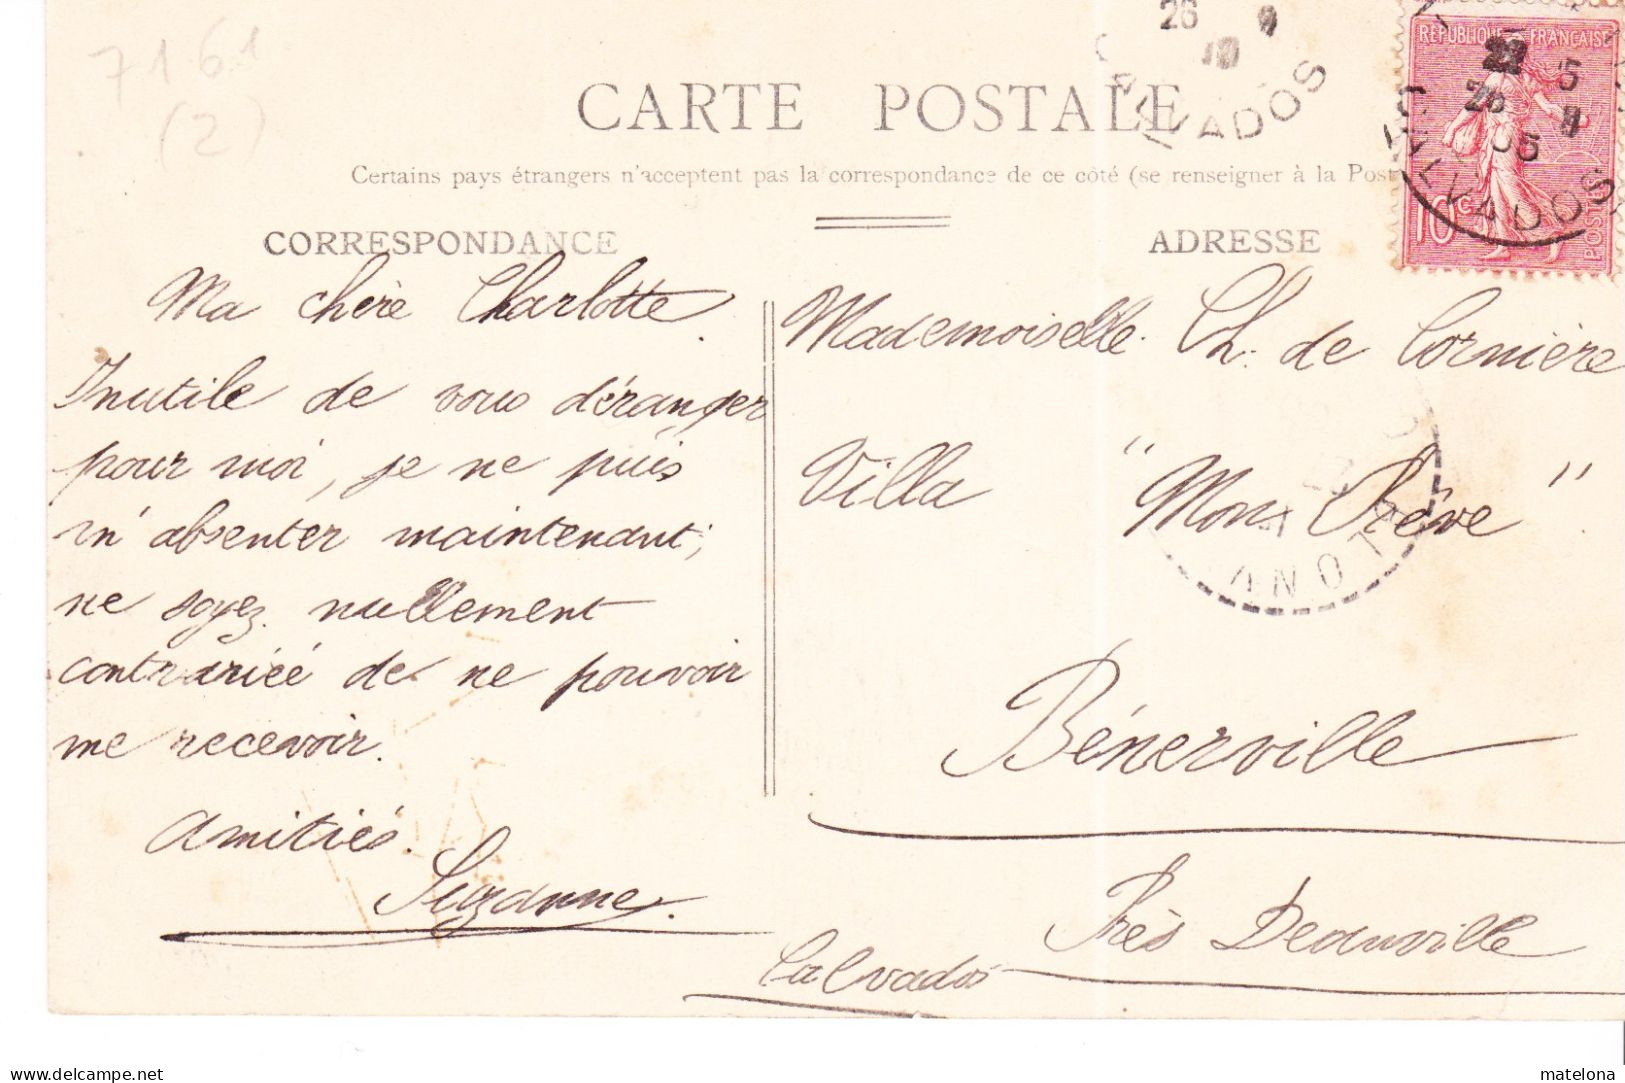 7161
(2)
CARTE POSTALE
Certains pays étrangers n'acceptent pas la correspondance de ce côté (se renseigner à la Post
CORRESPONDANCE
Ma chère Charlotte.
Inutile de vous déranger
pour moi, je ne puis
m'absenter maintenant;
ne soyez nullement
contrariéé de ne pouvoir
me recevoir.
Amitiés.
Suzanne.
ADRESSE
Mademoiselle Ch. de Cornière
Villa "Mon Rêve".
Bénerville
Près Deauville
Calvados
RÉPUBLIQUE FRANÇAISE
10c
POSTES
CALVADOS
26
10
CALVADOS
22
5
26
05
www.delcampe.net
matelona